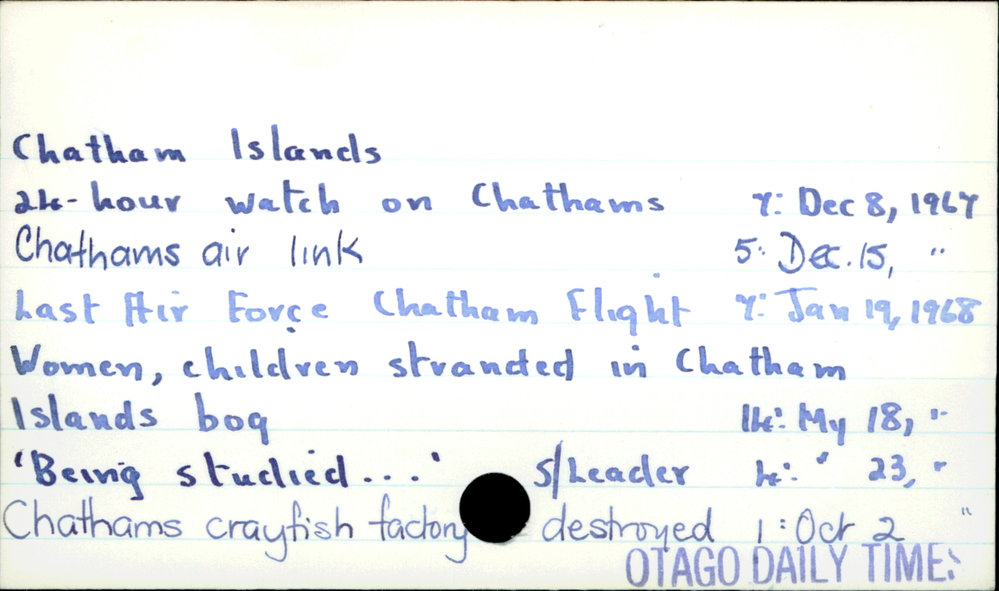 Chatham Islands
24-hour watch on Chathams 7: Dec 8, 1967
Chathams air link 5: Dec. 15, "
Last Air Force Chatham Flight 7: Jan 19, 1968
Women, children stranded in Chatham
Islands bog 14: My 18, "
'Being studied...' S/Leader 4: " 23, "
Chathams crayfish factory destroyed 1: Oct 2 "
OTAGO DAILY TIMES